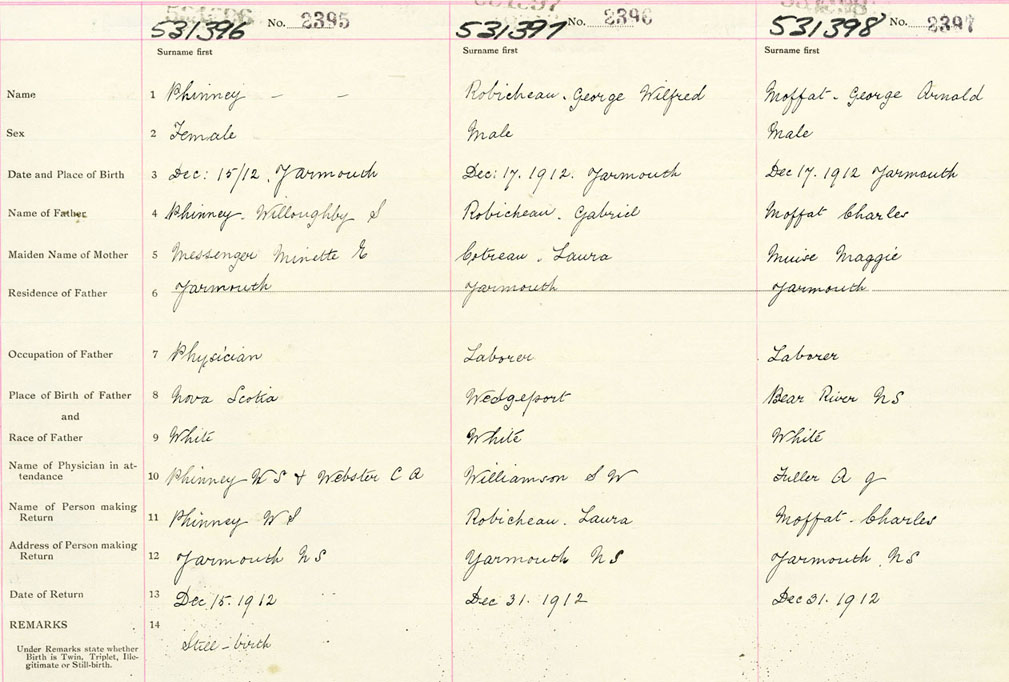 No. 2395 No. 2396 No. 2397
531396 531397 531398
Surname first Surname first Surname first
Name 1 Phinney - - Robicheau. George Wilfred Moffat - George Arnold
Sex 2 Female Male Male
Date and Place of Birth 3 Dec: 15/12. Yarmouth Dec: 17. 1912. Yarmouth Dec 17. 1912 Yarmouth
Name of Father 4 Phinney. Willoughby S Robicheau. Gabriel Moffat Charles
Maiden Name of Mother 5 Messenger Minette E Cotreau. Laura Muise Maggie
Residence of Father 6 Yarmouth Yarmouth Yarmouth
Occupation of Father 7 Physician Laborer Laborer
Place of Birth of Father 8 Nova Scotia Wedgeport Bear River NS
and
Race of Father 9 White White White
Name of Physician in at-
tendance 10 Phinney W S & Webster C A Williamson S W Fuller A G
Name of Person making
Return 11 Phinney W S Robicheau. Laura Moffat - Charles
Address of Person making
Return 12 Yarmouth NS Yarmouth NS Yarmouth. NS
Date of Return 13 Dec 15. 1912 Dec 31. 1912 Dec 31. 1912
REMARKS 14
Still-birth
Under Remarks state whether
Birth is Twin, Triplet, Ille-
gitimate or Still-birth.